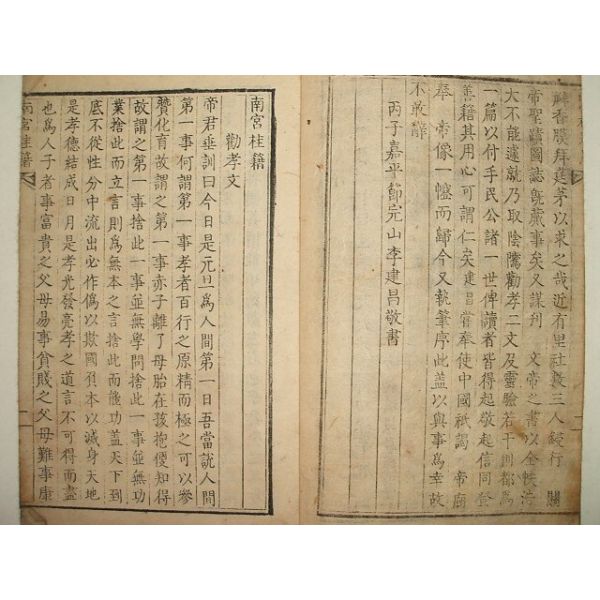 酹香膜拜莛茅以求之哉近有里社數三人鋟行　關
帝聖蹟圖誌旣蕆事矣又謀刊　文帝之書以全帙浩
大不能遽就乃取陰騭勸孝二文及靈驗若干則都爲
一篇以付手民公諸一世俾讀者皆得起敬起信同登
善籍其用心可謂仁矣建昌嘗奉使中國祇謁　帝廟
奉　帝像一幢而歸今又執筆序此盖以與事爲幸故
不敢辭
丙子嘉平節完山李建昌敬書
南宮桂籍
勸孝文
帝君垂訓曰今日是元旦爲人間第一日吾當說人間
第一事何謂第一事孝者百行之原精而極之可以參
贊化育故謂之第一事赤子離了母胎在孩抱便知得
故謂之第一事捨此一事並無學問捨此一事並無功
業捨此而立言則爲無本之言捨此而能功盖天下到
底不從性分中流出必作僞以欺國負本以滅身天地
是孝德結成日月是孝光發亮孝之道言不可得而盡
也爲人子者事富貴之父母易事貧賤之父母難事康
南宮桂籍